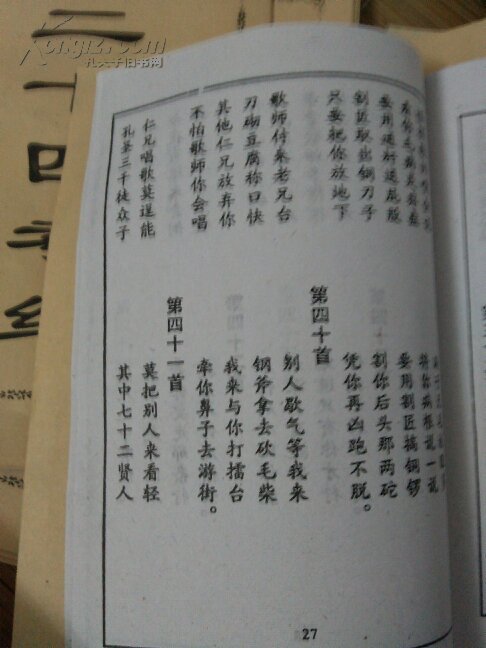 将你病根说一说
要用割匠搞铜锣
割匠取出钢刀子
割你后头那两砣
只要把你放地下
凭你再凶跑不脱。
第四十首
歌师付来老兄台
别人歇气等我来
刀砌豆腐称口快
钢斧拿去砍毛柴
其他仁兄放弃你
我来与你打擂台
不怕歌师你会唱
牵你鼻子去游街。
第四十一首
仁兄唱歌莫逞能
莫把别人来看轻
孔圣三千徒众子
其中七十二贤人
27
二十四孝
孔夫子旧书网